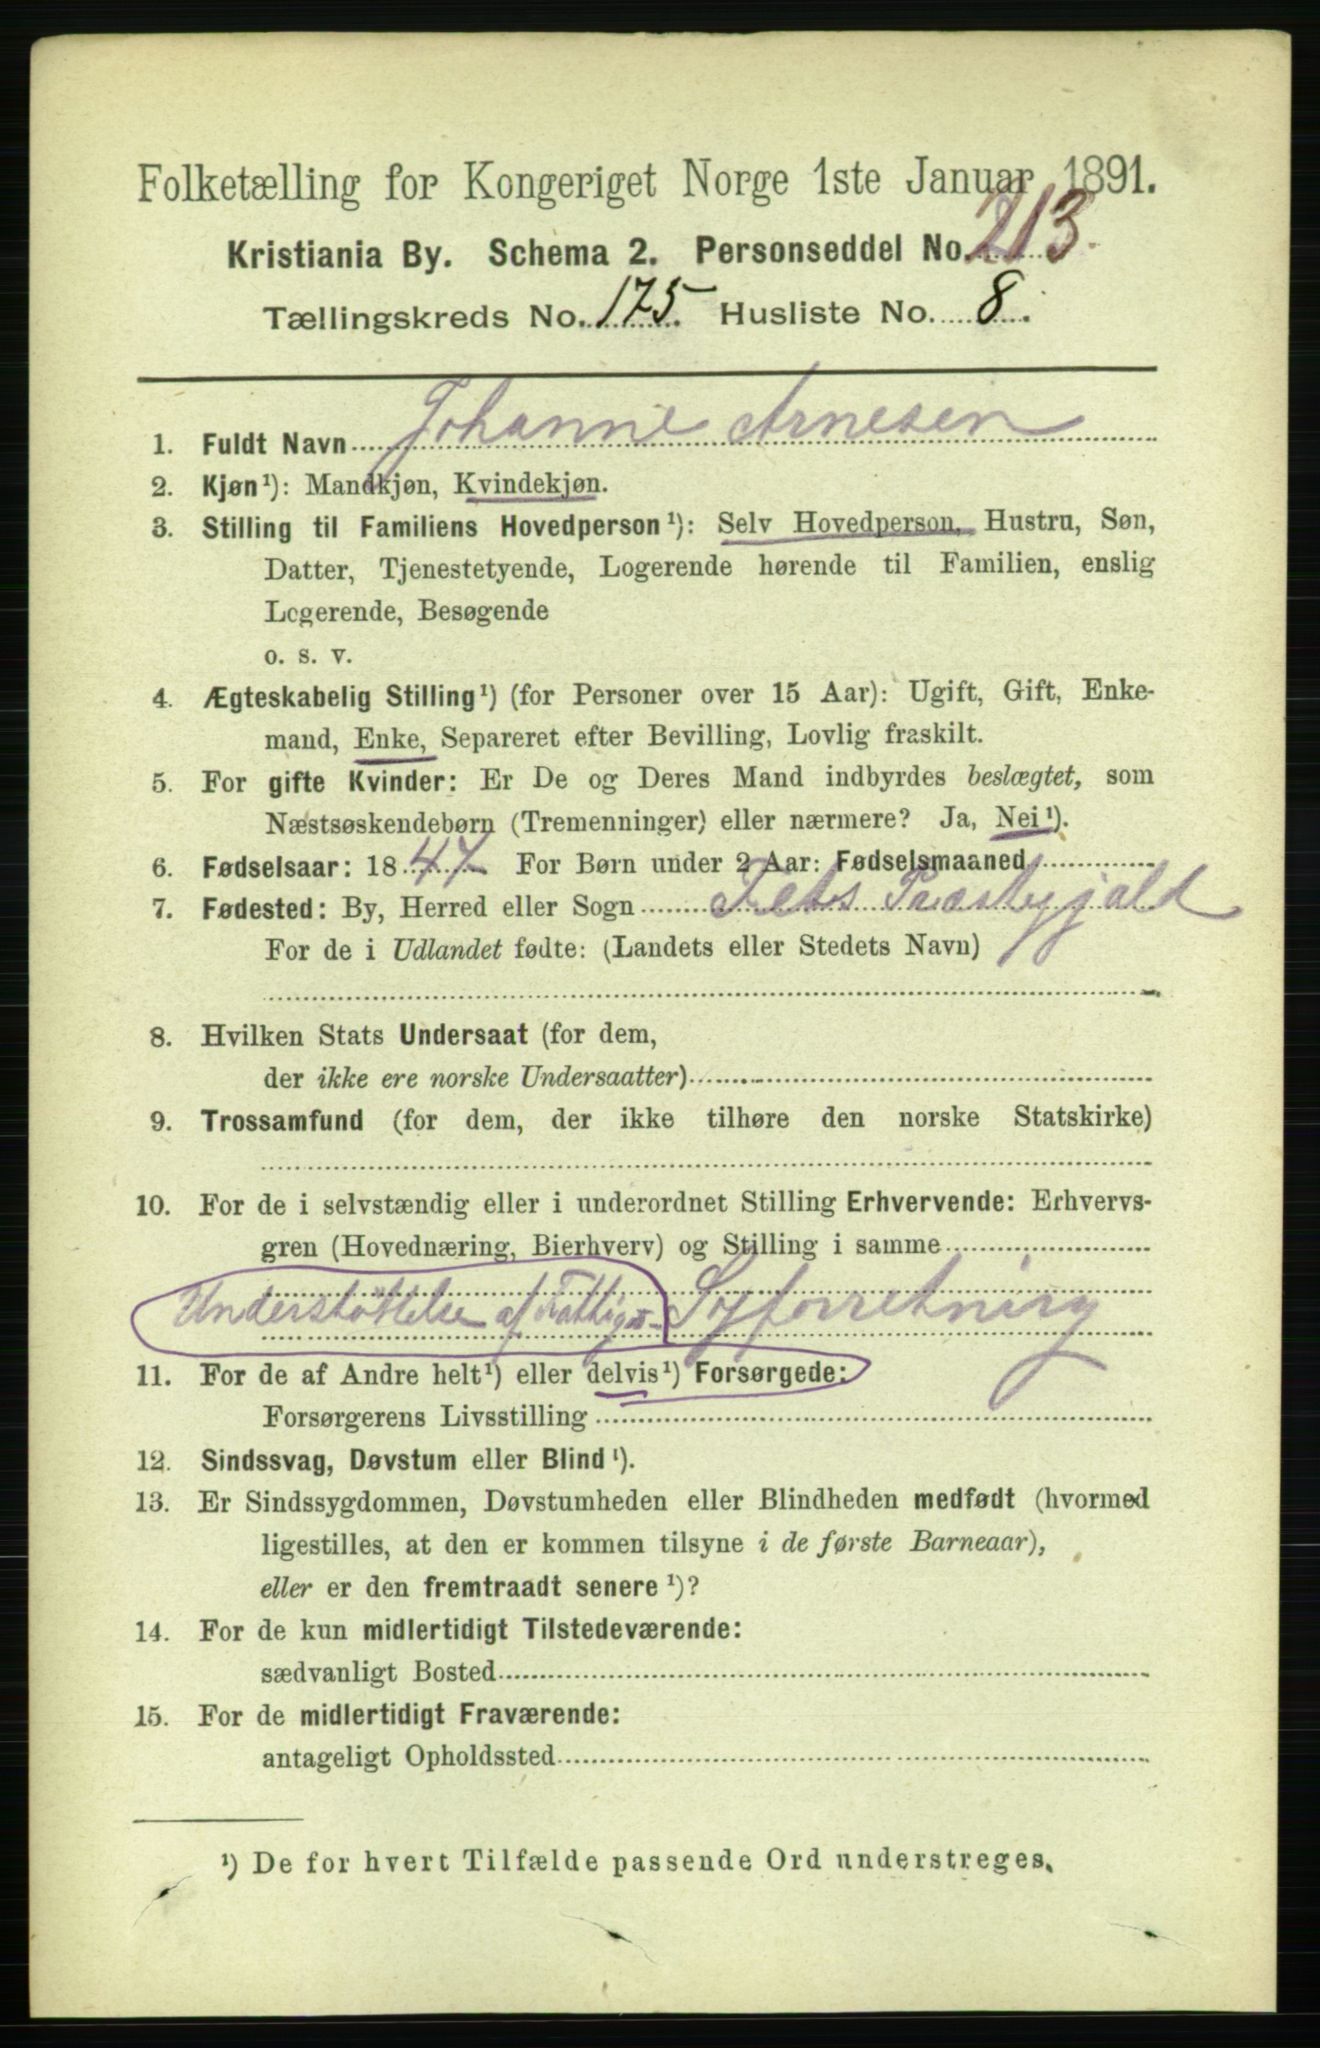 Folketælling for Kongeriget Norge 1ste Januar 1891.
Kristiania By. Schema 2. Personseddel No. 213.
Tællingskreds No. 175. Husliste No. 8.
1. Fuldt Navn Johanne Arnesen
2. Kjøn¹): Mandkjøn, Kvindekjøn.
3. Stilling til Familiens Hovedperson¹): Selv Hovedperson, Hustru, Søn,
Datter, Tjenestetyende, Logerende hørende til Familien, enslig
Logerende, Besøgende
o. s. v.
4. Ægteskabelig Stilling¹) (for Personer over 15 Aar): Ugift, Gift, Enke-
mand, Enke, Separeret efter Bevilling, Lovlig fraskilt.
5. For gifte Kvinder: Er De og Deres Mand indbyrdes beslægtet, som
Næstsøskendebørn (Tremenninger) eller nærmere? Ja, Nei¹).
6. Fødselsaar: 1847 For Børn under 2 Aar: Fødselsmaaned
7. Fødested: By, Herred eller Sogn Fets Præstegjald
For de i Udlandet fødte: (Landets eller Stedets Navn)
8. Hvilken Stats Undersaat (for dem,
der ikke ere norske Undersaatter)
9. Trossamfund (for dem, der ikke tilhøre den norske Statskirke)
10. For de i selvstændig eller i underordnet Stilling Erhvervende: Erhvervs-
gren (Hovednæring, Bierhverv) og Stilling i samme
Understøttelse af Fattigv. Syforretning
11. For de af Andre helt¹) eller delvis¹) Forsørgede:
Forsørgerens Livsstilling
12. Sindssvag, Døvstum eller Blind¹).
13. Er Sindssygdommen, Døvstumheden eller Blindheden medfødt (hvormed
ligestilles, at den er kommen tilsyne i de første Barneaar),
eller er den fremtraadt senere¹)?
14. For de kun midlertidigt Tilstedeværende:
sædvanligt Bosted
15. For de midlertidigt Fraværende:
antageligt Opholdssted
¹) De for hvert Tilfælde passende Ord understreges.